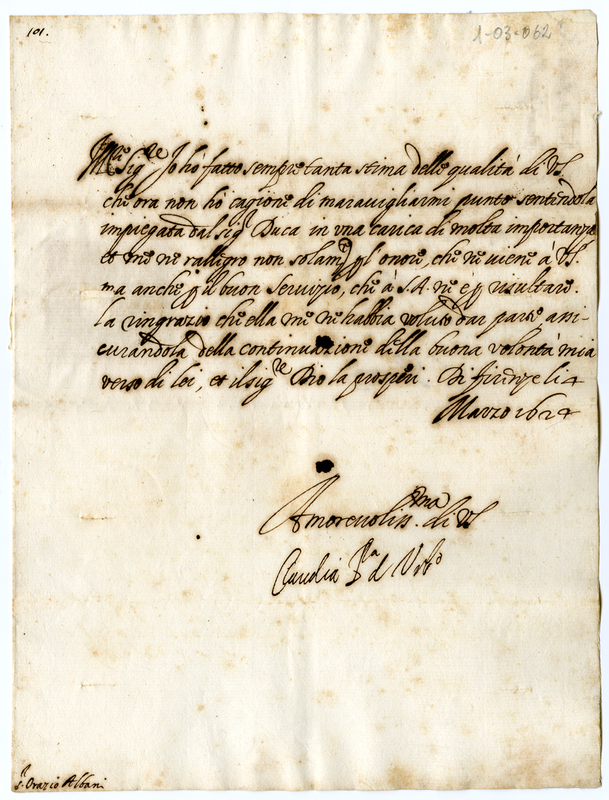 101.
1-03-062
M.re Sig.re Io hò fatto sempre tanta stima delle qualità di VS.
che ora non hò cagione di maravigliarmi punto sentendola
impiegata dal sig.r Duca in una carica di molta importanza
et me ne rallegro non solam.te p l'onore, che ne viene à VS.
ma anche p il buon servizio, che à S.A. ne è p risultare.
La ringrazio che ella me ne habbia voluto dar parte assi-
curandola della continuazione della buona volontà mia
verso di lei, et il sig.re Dio la prosperi. Di firenze li 4
Marzo 1624
Amorevoliss.ma di VS
Claudia P.a d Urb.o
s.r Orazio Albani